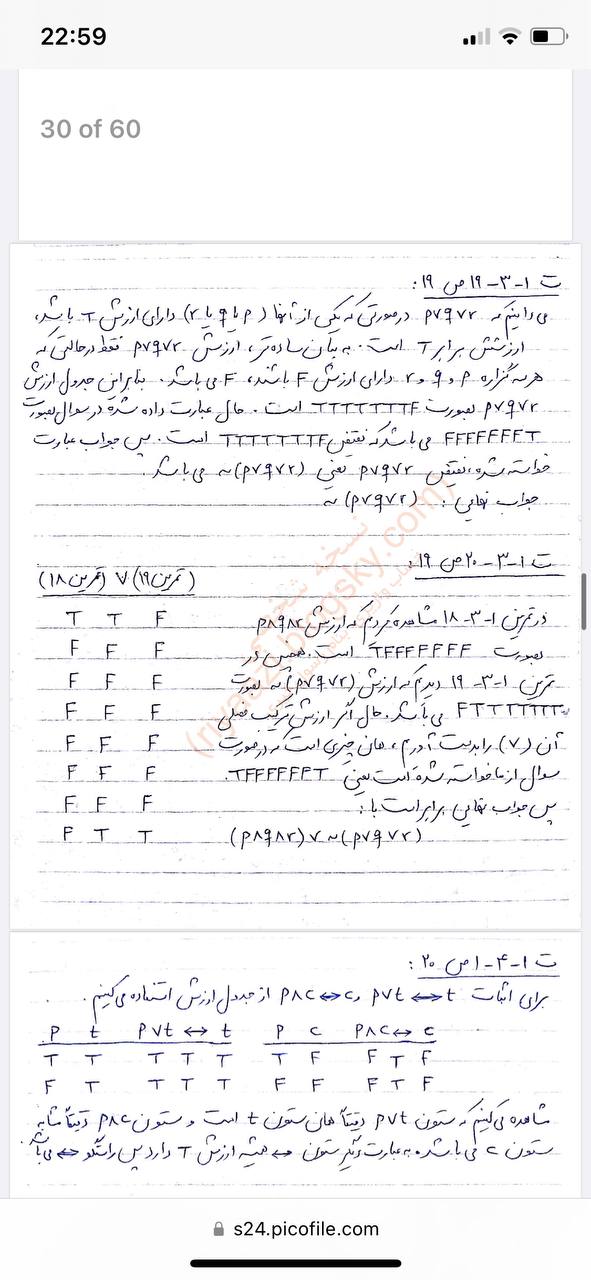 22:59
30 of 60
ت ۱-۳-۱۹ ص ۱۹:
می دانیم که p∨q∨r درصورتی که یکی از آنها (p یا q یا r) دارای ارزش T باشد،
ارزشش برابر T است. به بیان ساده تر، ارزش p∨q∨r فقط درحالتی که
هر سه گزاره p و q و r دارای ارزش F باشند، F می باشد. بنابراین جدول ارزش
p∨q∨r بصورت TTTTTTTF است. حال عبارت داده شده در سوال بصورت
FFFFFFFT می باشد که نقیض TTTTTTTF است. پس جواب عبارت
خواسته شده، نقیض p∨q∨r یعنی ~(p∨q∨r) می باشد.
جواب نهایی: ~(p∨q∨r)
ت ۱-۳-۲۰ ص ۱۹:
در تمرین ۱-۳-۱۸ مشاهده کردیم که ارزش p∧q∧r
بصورت TFFFFFFF است. همچنین در
تمرین ۱-۳-۱۹ دیدیم که ارزش ~(p∨q∨r) بصورت
FTTTTTTT می باشد. حال اگر ارزش ترکیب فصلی
آن (∨) را بدست آوریم، همان چیزی است که درصورت
سوال از ما خواسته شده است یعنی TFFFFFFT.
پس جواب نهایی برابر است با:
(p∧q∧r)∨~(p∨q∨r)
(تمرین ۱۸) ∨ (تمرین ۱۹)
T T F
F F F
F F F
F F F
F F F
F F F
F F F
F T T
ت ۱-۴-۱ ص ۲۰:
برای اثبات p∨t↔t و p∧c↔c از جدول ارزش استفاده می کنیم.
p t p∨t ↔ t p c p∧c ↔ c
T T T T T T F F T F
F T T T T F F F T F
مشاهده می کنیم که ستون p∨t دقیقاً همان ستون t است و ستون p∧c دقیقاً مشابه
ستون c می باشد. به عبارت دیگر ستون ↔ همیشه ارزش T دارد پس راستگو ↔ می باشد.
s24.picofile.com